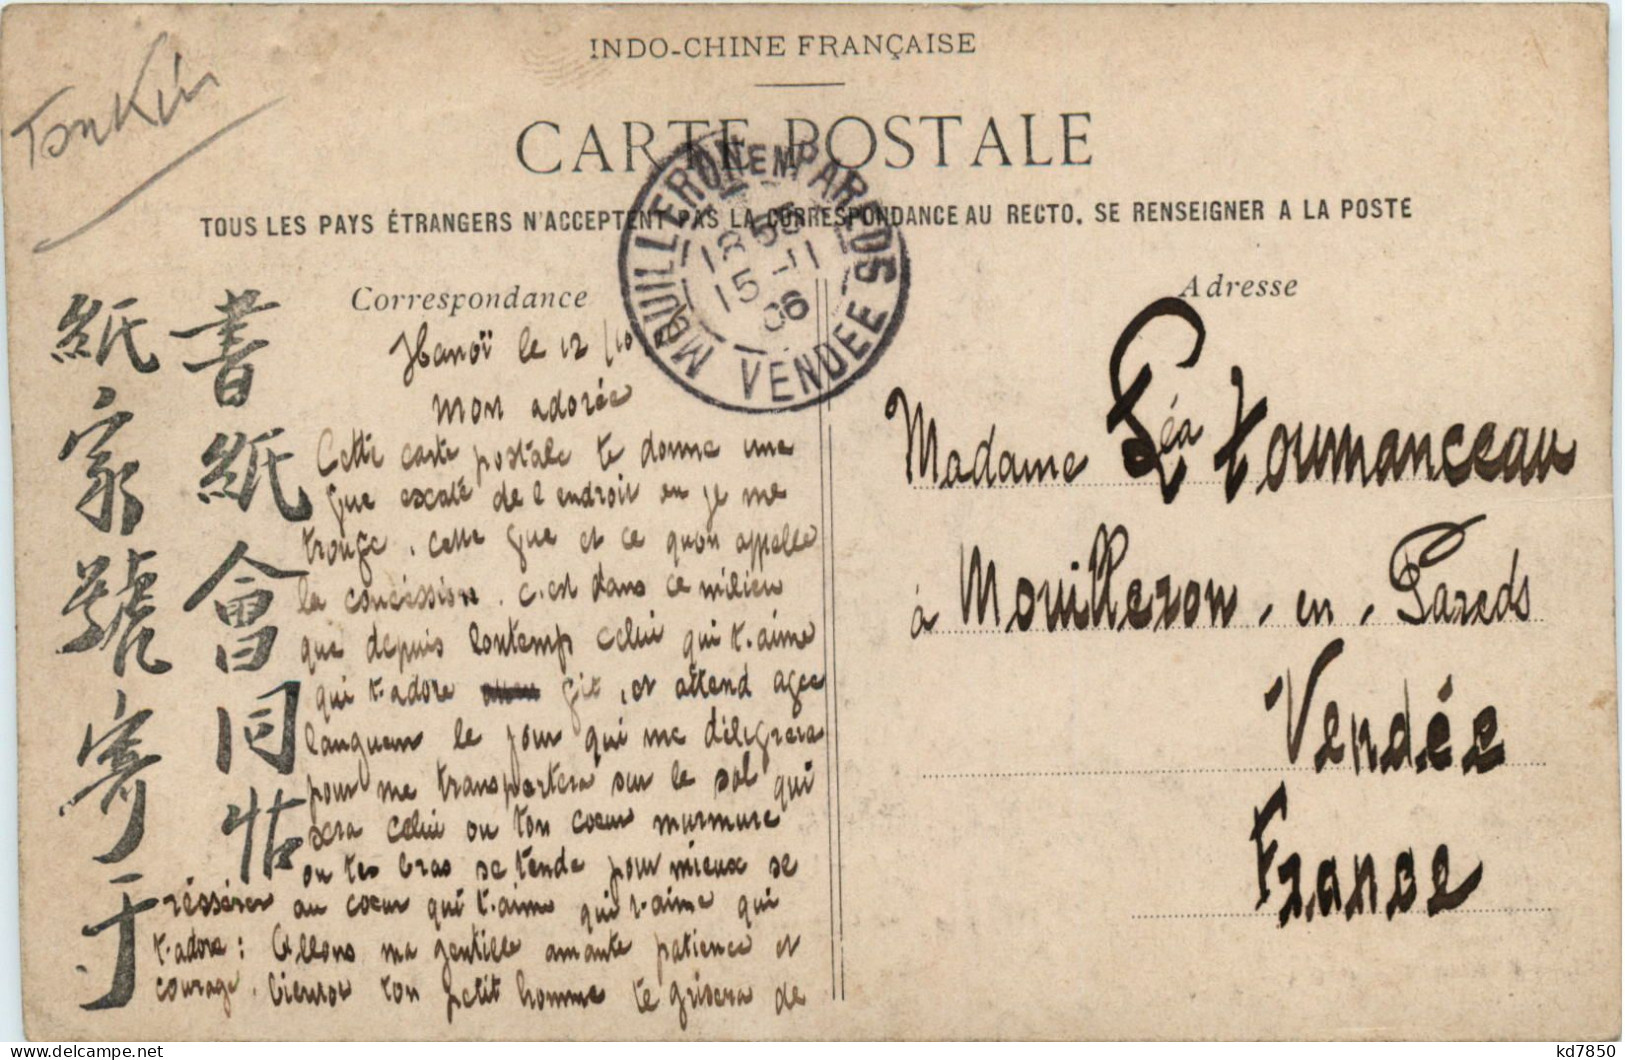 Tonkin
INDO-CHINE FRANÇAISE
CARTE POSTALE
TOUS LES PAYS ÉTRANGERS N'ACCEPTENT PAS LA CORRESPONDANCE AU RECTO. SE RENSEIGNER A LA POSTE
MOUILLERON EN PAREDS
15 -11
06
VENDEE
書紙會同帖
紙家號寄于
Correspondance
Hanoï le 12/10
Mon adorée
Cette carte postale te donne une
que exate de l endroit ou je me
trouve. Cette que est ce qu'on appelle
la concéssion. C'est dans ce milieu
que depuis lontemp celui qui t'aime
qui t'adore git, et attend avec
langueur le jour qui me déligrera
pour me transportera sur le sol qui
sera celui ou ton coeur murmure
ou tes bras se tende pour mieux se
réssérer au coeur qui t'aime qui t'aime qui
t'adore : Allons ma gentille amante patience et
courage. bientot ton petit homme te grisera de
Adresse
Madame Léa Toumanceau
à Mouilleron-en-Pareds
Vendée
France
kd7850